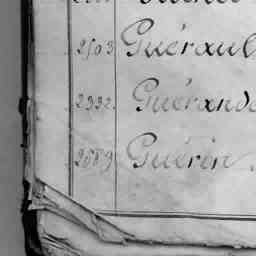 2503 Guéraul
2992. Guérand
2689 Guérin